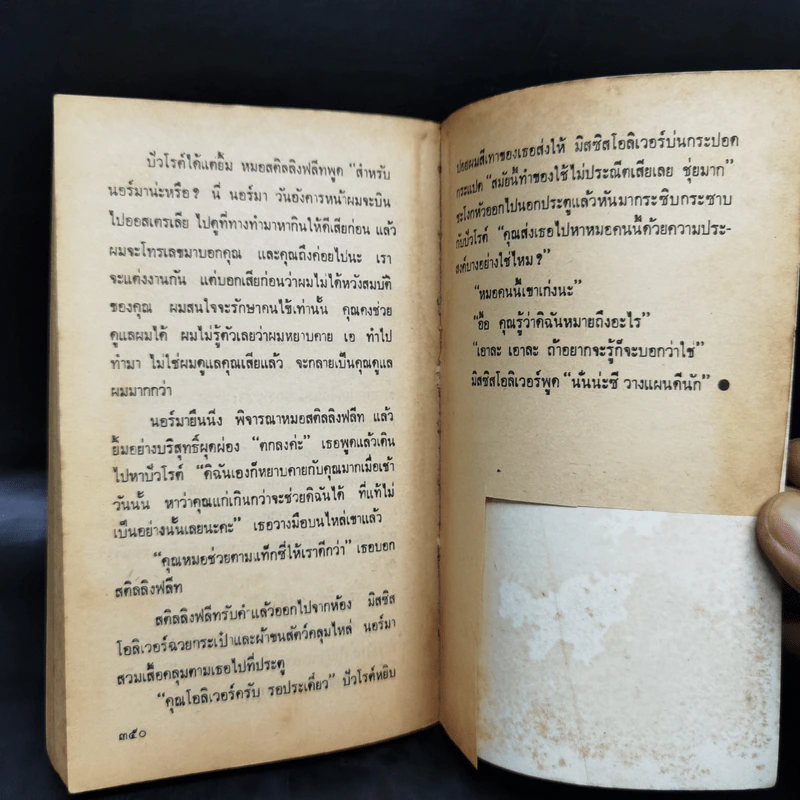 ปัวโรต์ได้แต่ยิ้ม หมอสติลลิงฟลีทพูด “สำหรับ
นอร์มาน่ะหรือ? นี่ นอร์มา วันอังคารหน้าผมจะบิน
ไปออสเตรเลีย ไปดูที่ทางทำมาหากินให้ดีเสียก่อน แล้ว
ผมจะโทรเลขมาบอกคุณ และคุณถึงค่อยไปนะ เรา
จะแต่งงานกัน แต่บอกเสียก่อนว่าผมไม่ได้หวังสมบัติ
ของคุณ ผมสนใจจะรักษาคนไข้เท่านั้น คุณคงช่วย
ดูแลผมได้ ผมไม่รู้ตัวเลยว่าผมหยาบคาย เอ ทำไป
ทำมา ไม่ใช่ผมดูแลคุณเสียแล้ว จะกลายเป็นคุณดูแล
ผมมากกว่า
นอร์มายืนนิ่ง พิจารณาหมอสติลลิงฟลีท แล้ว
ยิ้มอย่างบริสุทธิ์ผุดผ่อง “ตกลงค่ะ” เธอพูดแล้วเดิน
ไปหาปัวโรต์ “ดิฉันเองก็หยาบคายกับคุณมากเมื่อเช้า
วันนั้น หาว่าคุณแก่เกินกว่าจะช่วยดิฉันได้ ที่แท้ไม่
เป็นอย่างนั้นเลยนะคะ” เธอวางมือบนไหล่เขาแล้ว
“คุณหมอช่วยตามแท็กซี่ให้เราดีกว่า” เธอบอก
สติลลิงฟลีท
สติลลิงฟลีทรับคำแล้วออกไปจากห้อง มิสซิส
โอลิเวอร์ฉวยกระเป๋าและผ้าขนสัตว์คลุมไหล่ นอร์มา
สวมเสื้อคลุมตามเธอไปที่ประตู
“คุณโอลิเวอร์ครับ รอประเดี๋ยว” ปัวโรต์หยิบ
๓๕๐
ปอยผมสีเทาของเธอส่งให้ มิสซิสโอลิเวอร์บ่นกระปอด
กระแปด “สมัยนี้ทำของใช้ไม่ประณีตเสียเลย ชุ่ยมาก”
ชะโงกหัวออกไปนอกประตูแล้วหันมากระซิบกระซาบ
กับปัวโรต์ “คุณส่งเธอไปหาหมอคนนี้ด้วยความประ-
สงค์บางอย่างใช่ไหม?”
“หมอคนนี้เขาเก่งนะ”
“อื้อ คุณรู้ว่าดิฉันหมายถึงอะไร”
“เอาละ เอาละ ถ้าอยากจะรู้ก็จะบอกว่าใช่”
มิสซิสโอลิเวอร์พูด “นั่นน่ะซี วางแผนดีนัก” ●